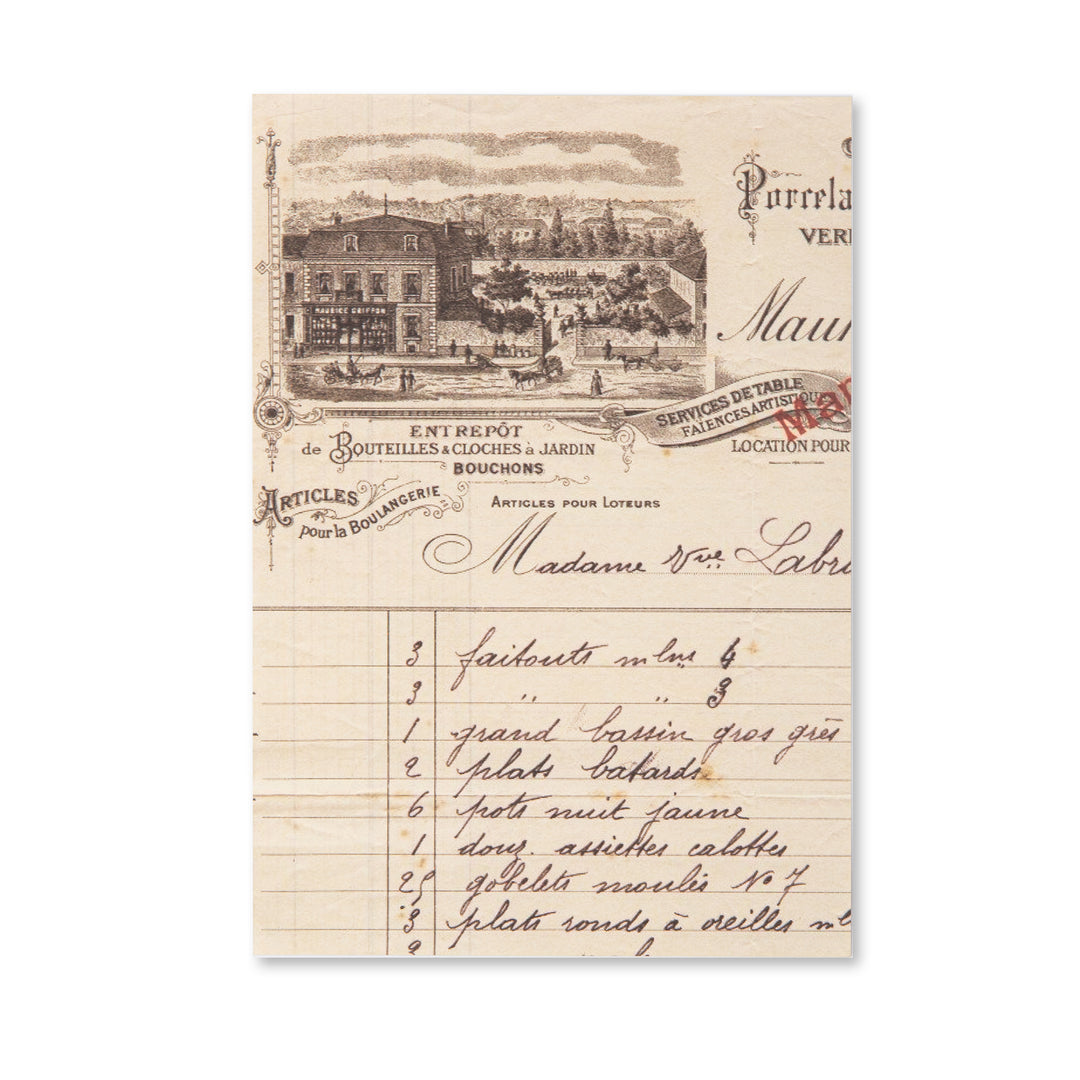 Porcela
VER
MAURICE GRIFFON
Maur
SERVICES DE TABLE
FAÏENCES ARTISTIQU
Mar
LOCATION POUR
ENTREPÔT
de BOUTEILLES & CLOCHES à JARDIN
BOUCHONS
ARTICLES
pour la BOULANGERIE
ARTICLES POUR LOTEURS
Madame Vve Labr
3 faitouts mlns 4
3 " " 3
1 grand bassin gros grès
2 plats batards
6 pots nuit jaune
1 douz. assiettes calottes
25 gobelets moulés No 7
3 plats ronds à oreilles ml